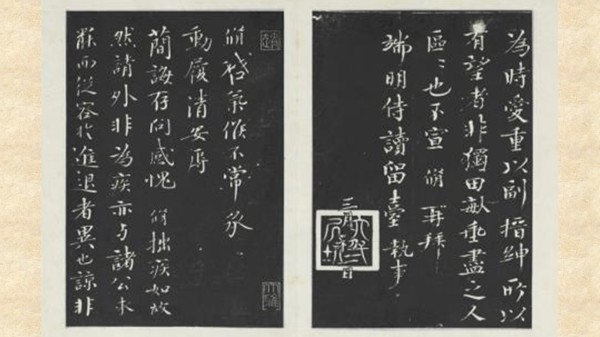 為時愛重以副搢紳所以
有望者非獨田畝垂盡之人
區〻也不宣 脩再拜
端明侍讀留臺執事
三月 日
脩啓氣候不常承
動履清安辱
簡誨存問感愧 脩拙疾如故
然請外非為疾亦与諸公求
罷而從容於進退者異也諒非